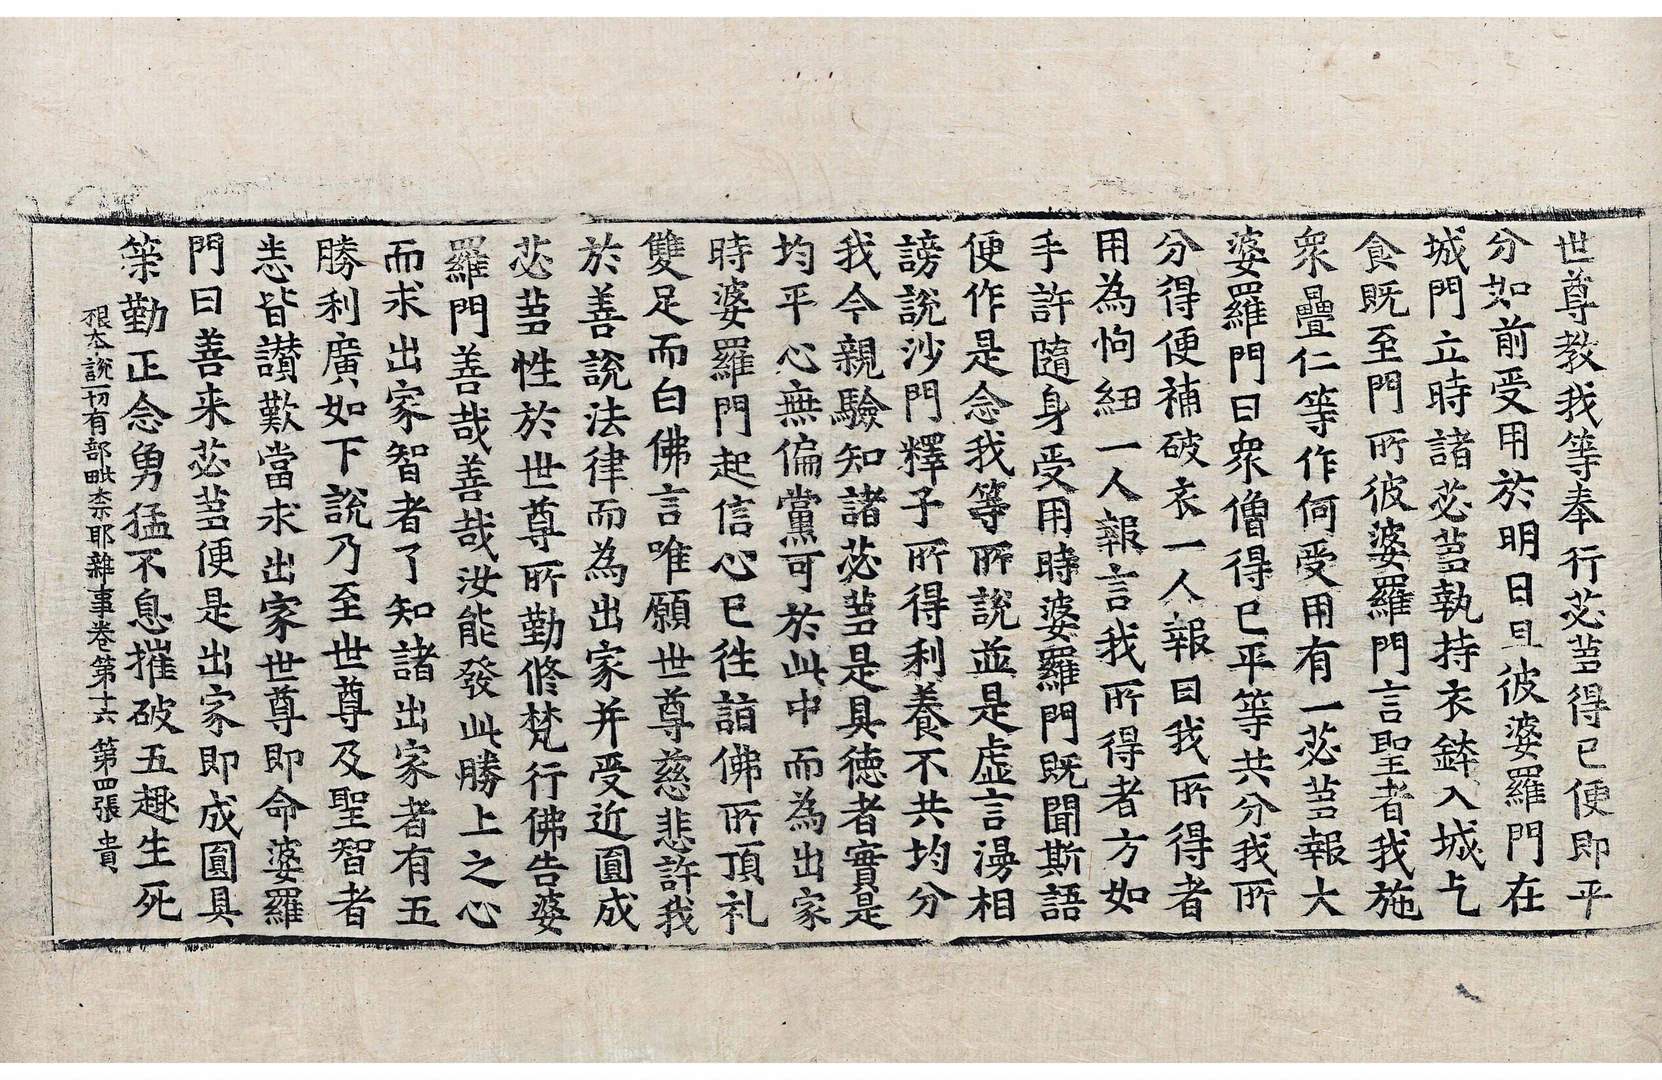 世尊教我等奉行苾蒭得已便即平
分如前受用於明日旦彼婆羅門在
城門立時諸苾蒭執持衣鉢入城乞
食既至門所彼婆羅門言聖者我施
衆疊仁等作何受用有一苾蒭報大
婆羅門曰衆僧得已平等共分我所
分得便補破衣一人報曰我所得者
用為怐紐一人報言我所得者方如
手許隨身受用時婆羅門既聞斯語
便作是念我等所說並是虛言漫相
謗說沙門釋子所得利養不共均分
我今親驗知諸苾蒭是具徳者實是
均平心無偏黨可於此中而為出家
時婆羅門起信心已徃詣佛所頂礼
雙足而白佛言唯願世尊慈悲許我
於善說法律而為出家并受近圓成
苾蒭性於世尊所勤修梵行佛告婆
羅門善哉善哉汝能發此勝上之心
而求出家智者了知諸出家者有五
勝利廣如下說乃至世尊及聖智者
恚皆讃歎當求出家世尊即命婆羅
門曰善来苾蒭便是出家即成圓具
策勤正念勇猛不息摧破五趣生死
根本說一切有部毗柰耶雜事卷第十六 第四張 貴